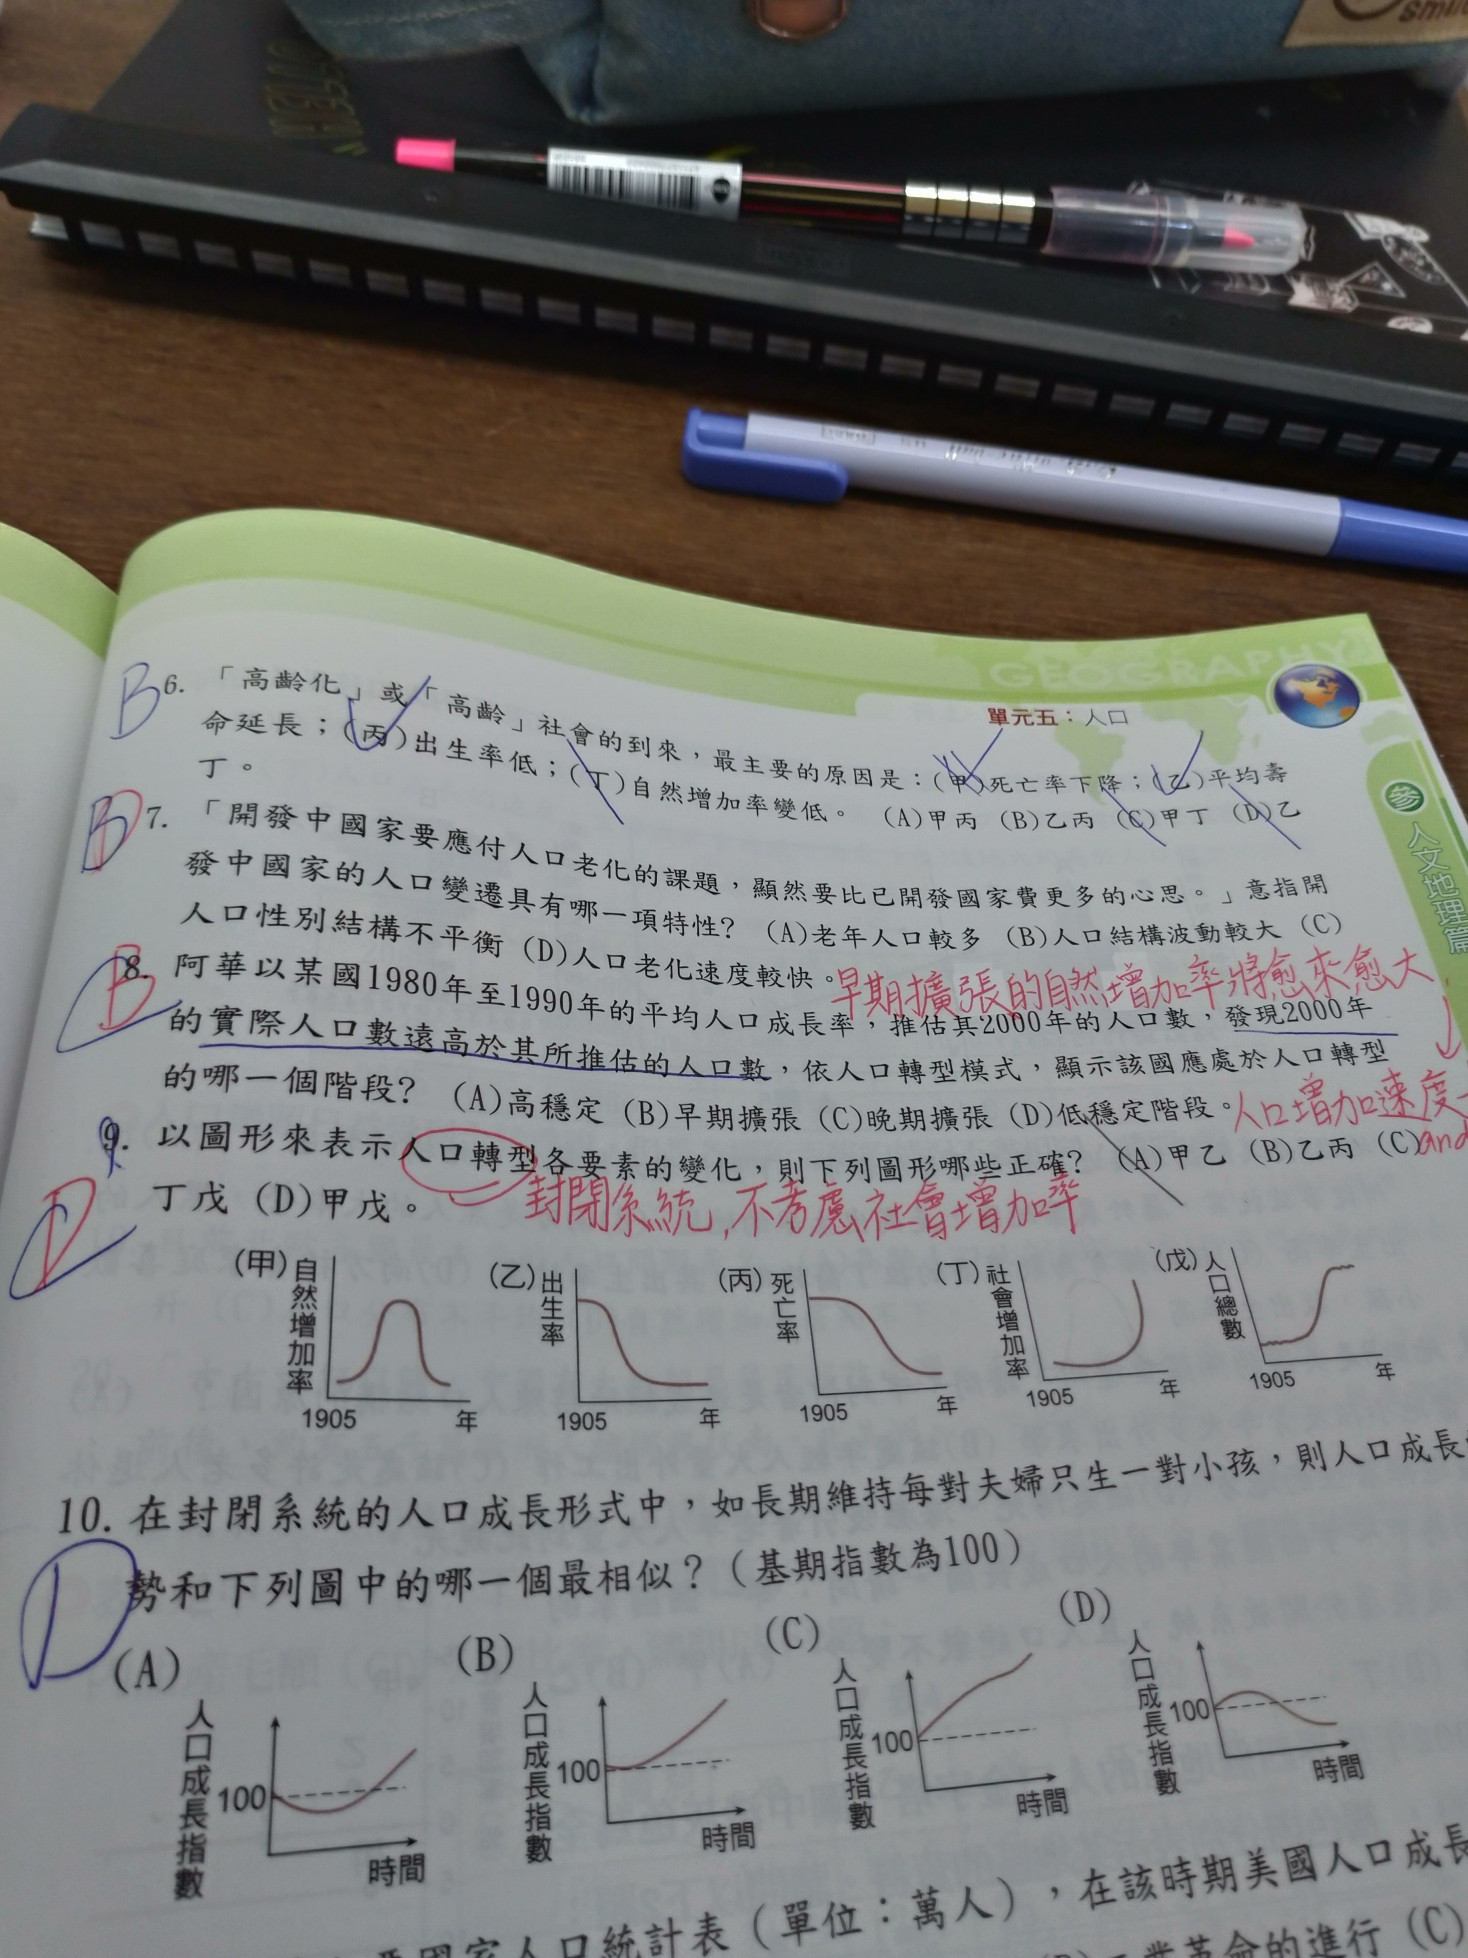 smil
GEOGRAPHY
單元五：人口
參
人文地理篇
B 6. 「高齡化」或「高齡」社會的到來，最主要的原因是：(甲)死亡率下降；(乙)平均壽
命延長；(丙)出生率低；(丁)自然增加率變低。 (A)甲丙 (B)乙丙 (C)甲丁 (D)乙
丁。
B 7. 「開發中國家要應付人口老化的課題，顯然要比已開發國家費更多的心思。」意指開
發中國家的人口變遷具有哪一項特性? (A)老年人口較多 (B)人口結構波動較大 (C)
人口性別結構不平衡 (D)人口老化速度較快。
早期擴張的自然增加率將愈來愈大
B 8. 阿華以某國1980年至1990年的平均人口成長率，推估其2000年的人口數，發現2000年
的實際人口數遠高於其所推估的人口數，依人口轉型模式，顯示該國應處於人口轉型
的哪一個階段? (A)高穩定 (B)早期擴張 (C)晚期擴張 (D)低穩定階段。
人口增加速度
and
D 9. 以圖形來表示人口轉型各要素的變化，則下列圖形哪些正確? (A)甲乙 (B)乙丙 (C)
丁戊 (D)甲戊。
封閉系統,不考慮社會增加率
(甲) 自然增加率 1905 年
(乙) 出生率 1905 年
(丙) 死亡率 1905 年
(丁) 社會增加率 1905 年
(戊) 人口總數 1905 年
D 10. 在封閉系統的人口成長形式中，如長期維持每對夫婦只生一對小孩，則人口成長
勢和下列圖中的哪一個最相似？（基期指數為100）
(A) 人口成長指數 100 時間
(B) 人口成長指數 100 時間
(C) 人口成長指數 100 時間
(D) 人口成長指數 100 時間
國家人口統計表（單位：萬人），在該時期美國人口成長
業革命的進行 (C)